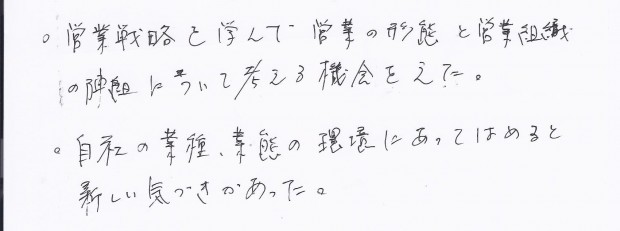 。営業戦略を学んで営業の形態と営業組織
の陣組について考える機会をえた。
。自社の業種、業態の環境にあってはめると
新しい気づきがあった。